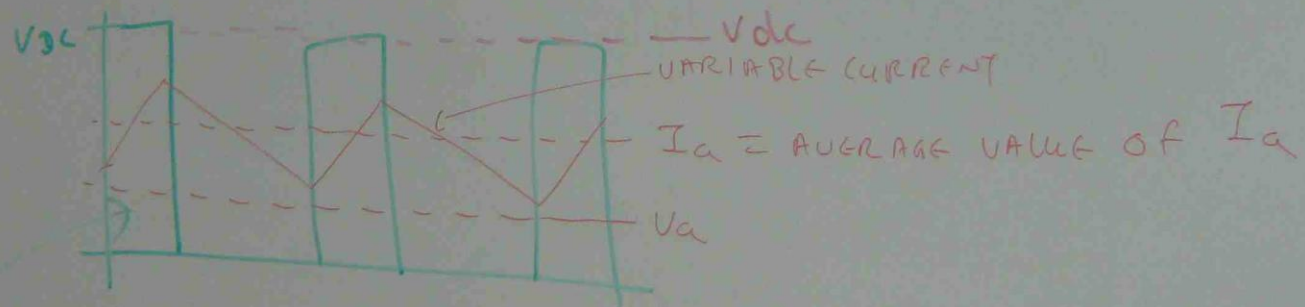 VDC
Vdc
VARIABLE CURRENT
Ia = AVERAGE VALUE OF Ia
Va